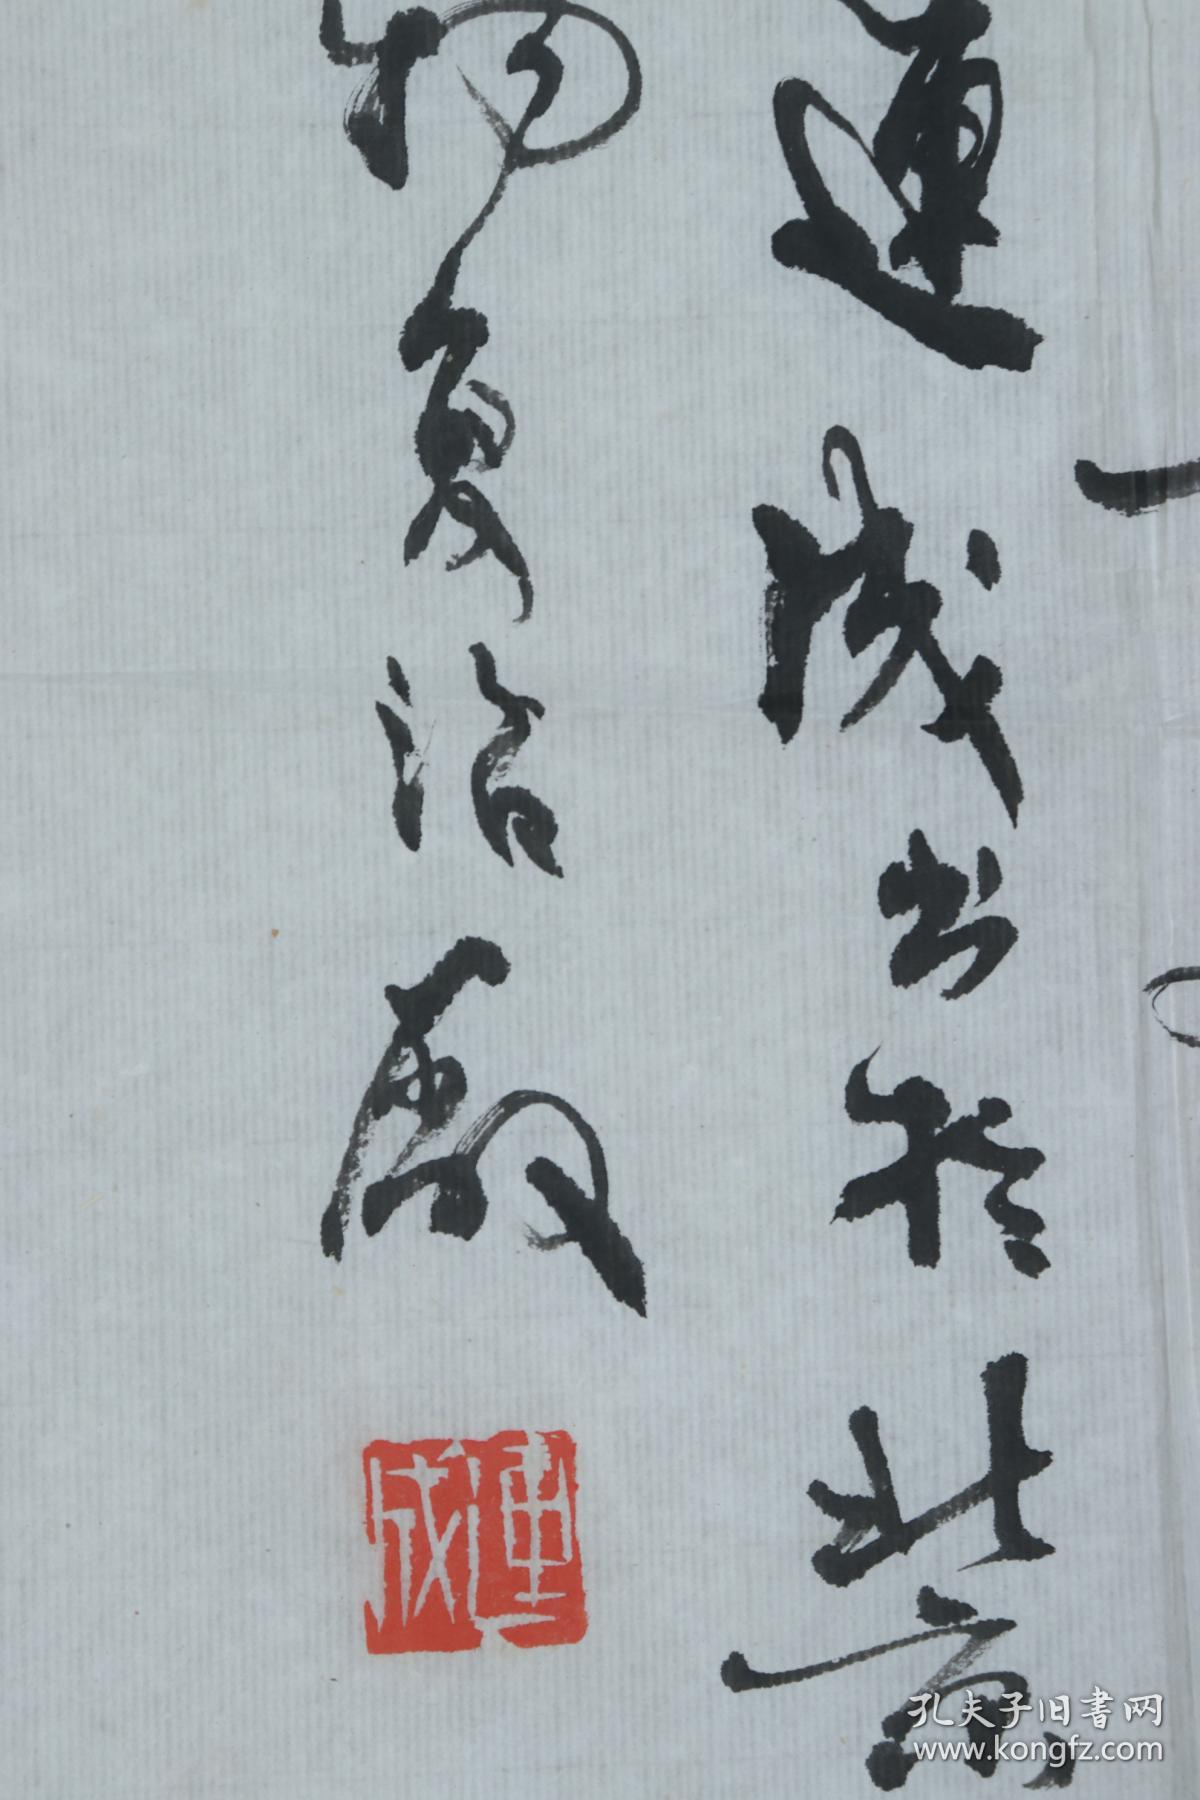 連成书於北京
物夏治嚴
連成
孔夫子旧書网
www.kongfz.com